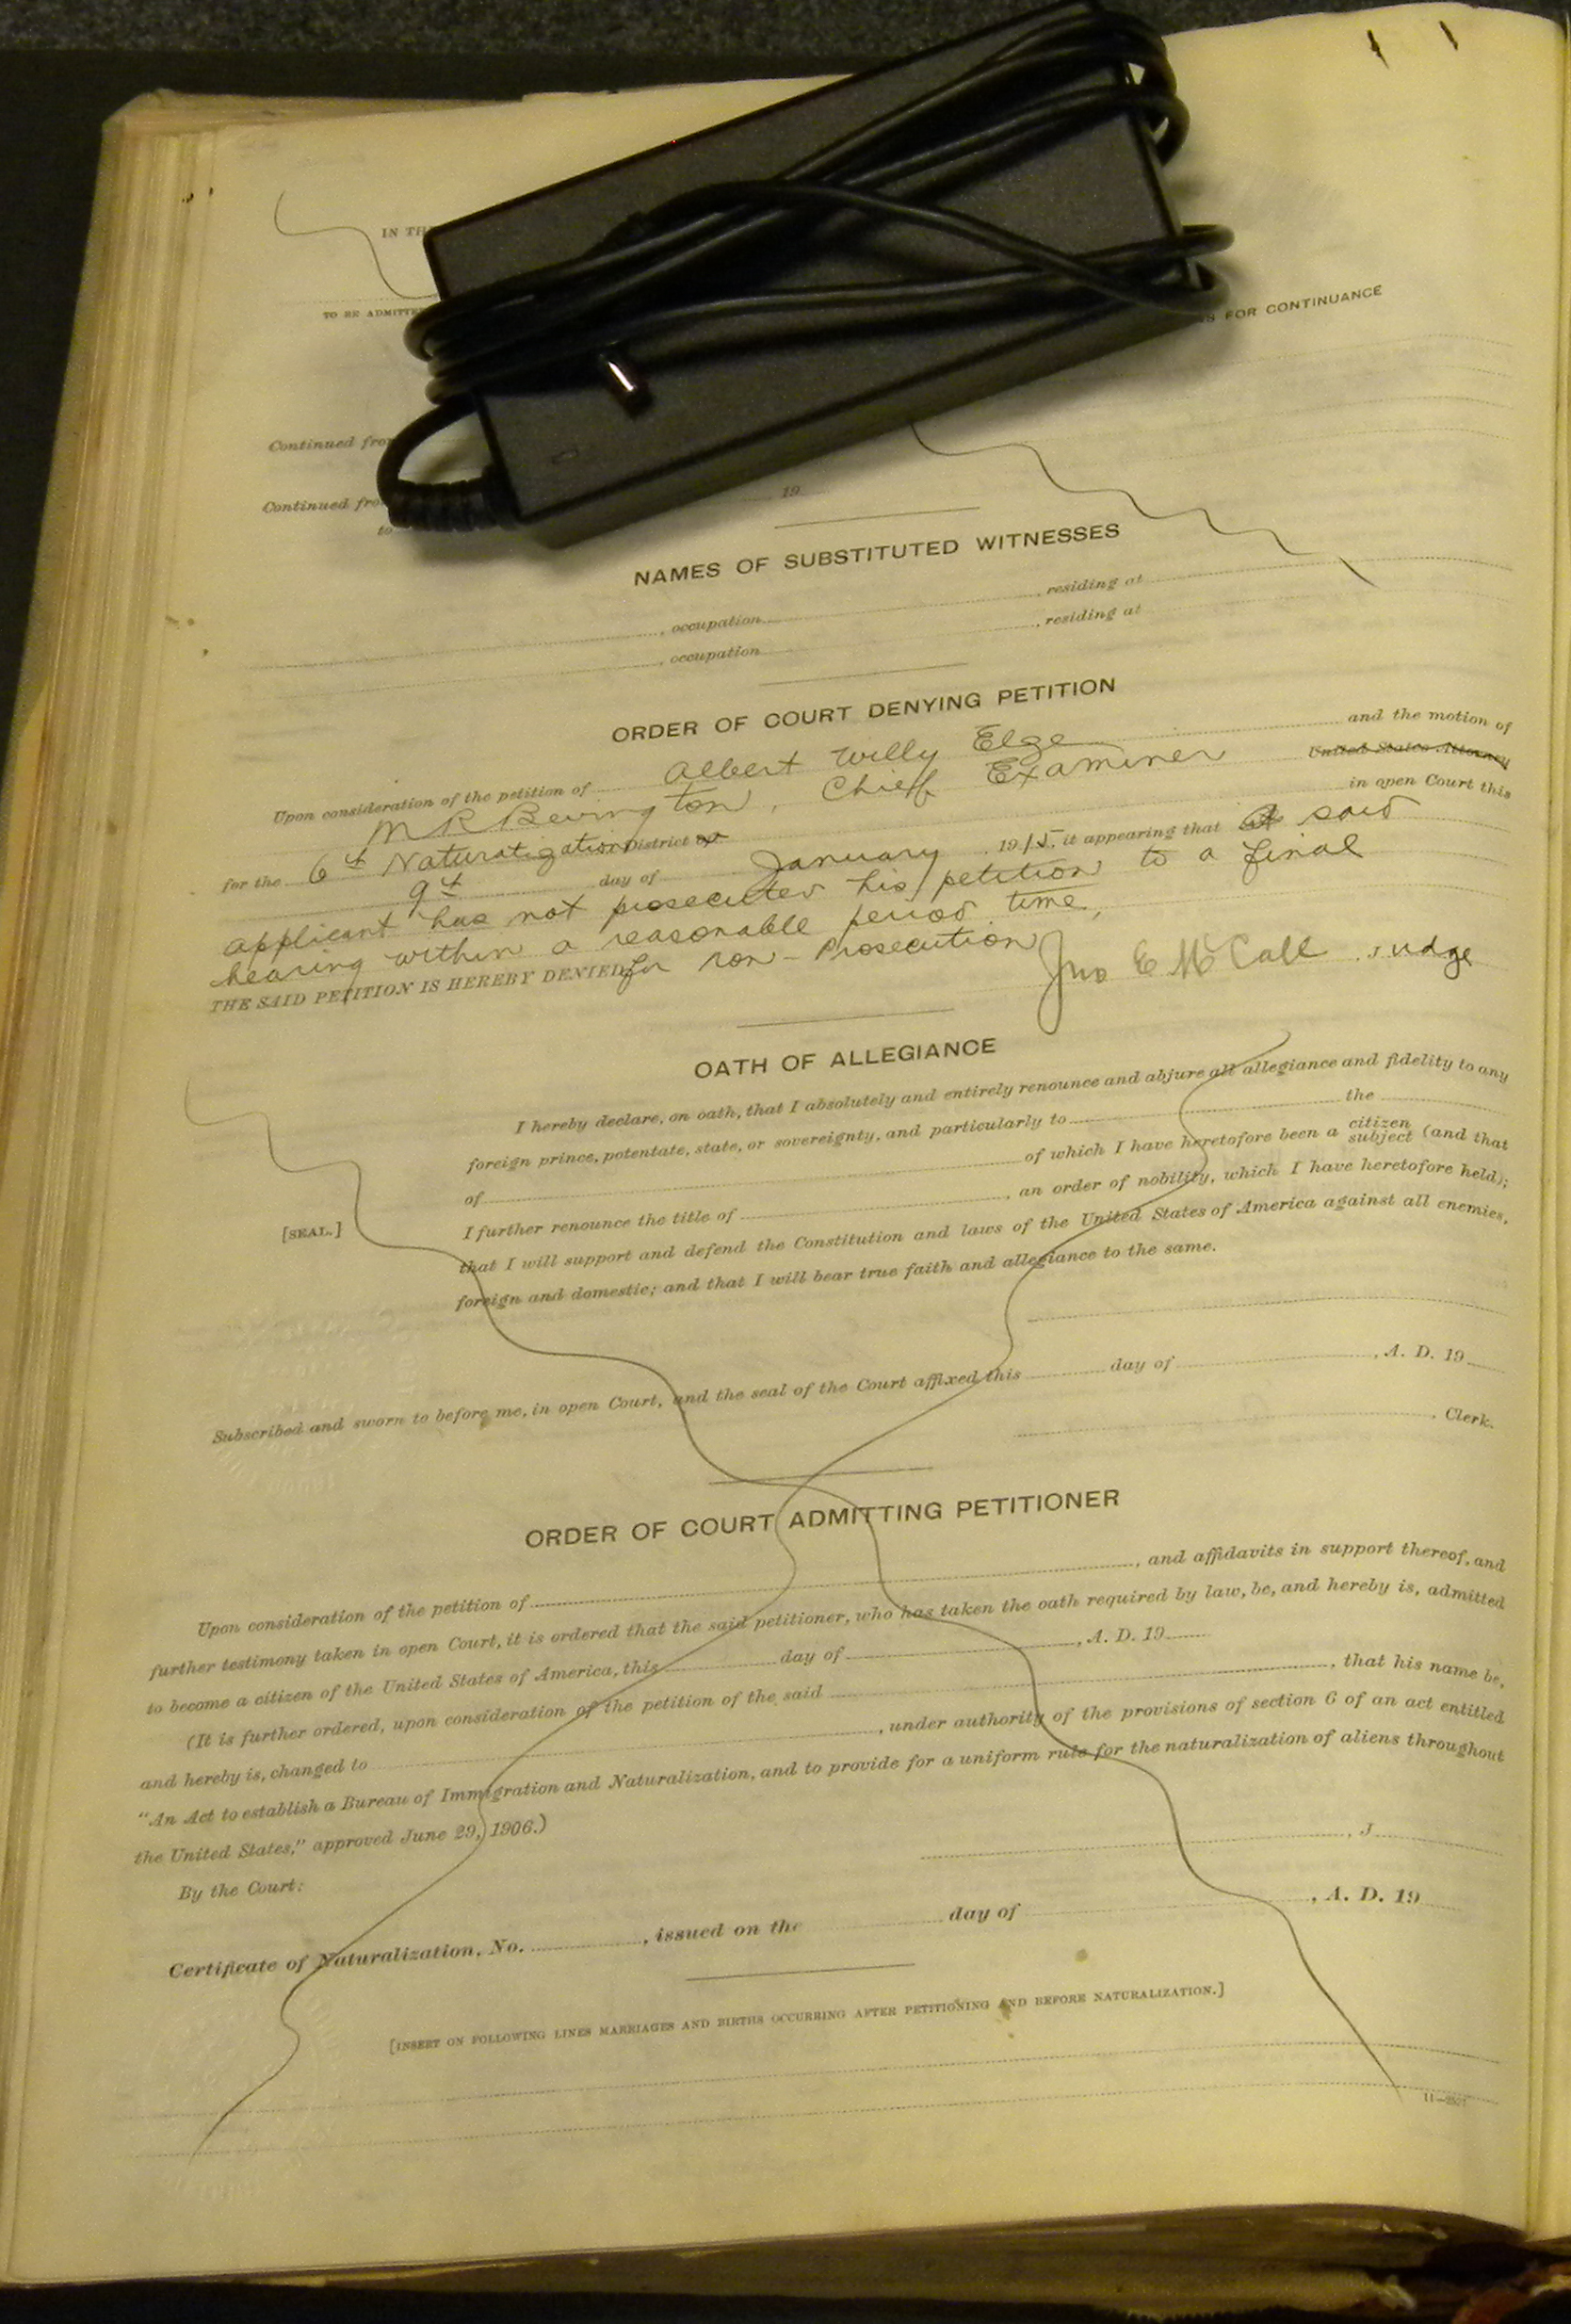 IN TH
TO BE ADMITTE
FOR CONTINUANCE
Continued from
Continued fro
to
19
NAMES OF SUBSTITUTED WITNESSES
, occupation , residing at
, occupation , residing at
ORDER OF COURT DENYING PETITION
Upon consideration of the petition of Albert Willy Elze and the motion of
M R Bevington, Chief Examiner United States Attorney
for the 6th Naturalization District in open Court this
9th day of January, 1915, it appearing that said
applicant has not prosecuted his petition to a final
hearing within a reasonable period time,
THE SAID PETITION IS HEREBY DENIED for non-Prosecution
Jno E McCall, Judge
OATH OF ALLEGIANCE
I hereby declare, on oath, that I absolutely and entirely renounce and abjure all allegiance and fidelity to any
foreign prince, potentate, state, or sovereignty, and particularly to the
of of which I have heretofore been a citizen subject (and that
I further renounce the title of , an order of nobility, which I have heretofore held);
[SEAL.]
that I will support and defend the Constitution and laws of the United States of America against all enemies,
foreign and domestic; and that I will bear true faith and allegiance to the same.
Subscribed and sworn to before me, in open Court, and the seal of the Court affixed this day of , A. D. 19
, Clerk.
ORDER OF COURT ADMITTING PETITIONER
Upon consideration of the petition of , and affidavits in support thereof, and
further testimony taken in open Court, it is ordered that the said petitioner, who has taken the oath required by law, be, and hereby is, admitted
to become a citizen of the United States of America, this day of , A. D. 19
(It is further ordered, upon consideration of the petition of the said , that his name be,
and hereby is, changed to , under authority of the provisions of section 6 of an act entitled
"An Act to establish a Bureau of Immigration and Naturalization, and to provide for a uniform rule for the naturalization of aliens throughout
the United States," approved June 29, 1906.)
By the Court:
, J
Certificate of Naturalization, No. , issued on the day of , A. D. 19
[INSERT ON FOLLOWING LINES MARRIAGES AND BIRTHS OCCURRING AFTER PETITIONING AND BEFORE NATURALIZATION.]